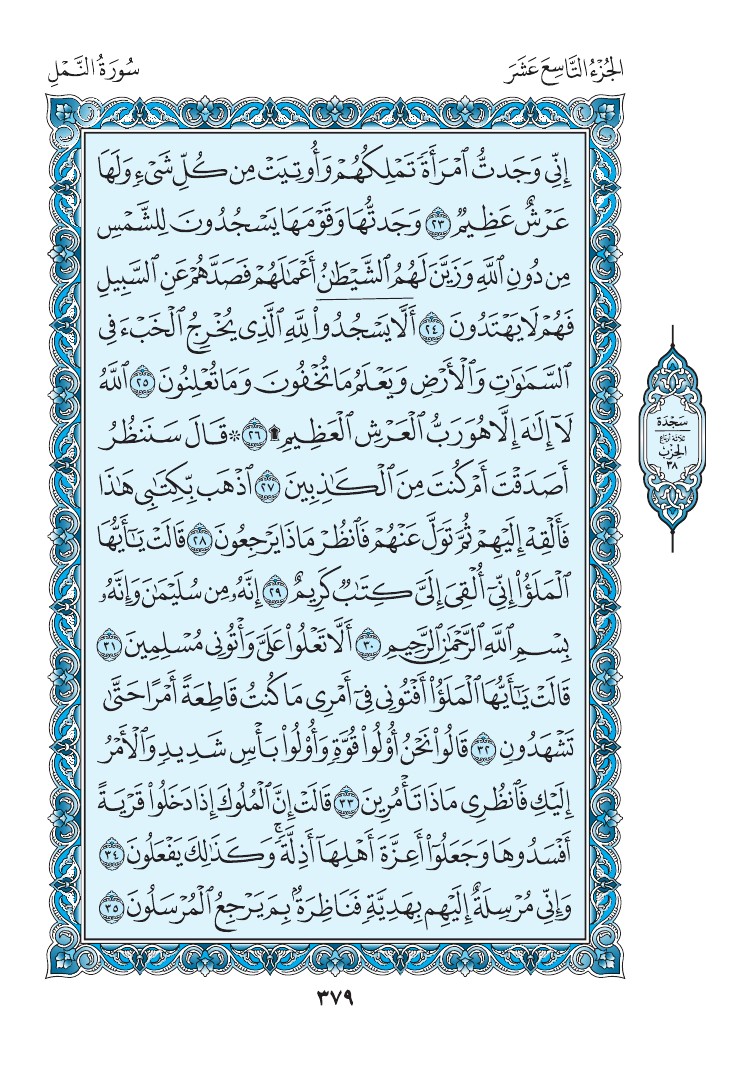 الجُزْءُ التَّاسِعَ عَشَرَ
سُورَةُ النَّمْلِ
إِنِّي وَجَدتُّ ٱمۡرَأَةٗ تَمۡلِكُهُمۡ وَأُوتِيَتۡ مِن كُلِّ شَيۡءٖ وَلَهَا
عَرۡشٌ عَظِيمٞ ٢٣ وَجَدتُّهَا وَقَوۡمَهَا يَسۡجُدُونَ لِلشَّمۡسِ
مِن دُونِ ٱللَّهِ وَزَيَّنَ لَهُمُ ٱلشَّيۡطَٰنُ أَعۡمَٰلَهُمۡ فَصَدَّهُمۡ عَنِ ٱلسَّبِيلِ
فَهُمۡ لَا يَهۡتَدُونَ ٢٤ أَلَّاۤ يَسۡجُدُواْۤ لِلَّهِۤ ٱلَّذِي يُخۡرِجُ ٱلۡخَبۡءَ فِي
ٱلسَّمَٰوَٰتِ وَٱلۡأَرۡضِ وَيَعۡلَمُ مَا تُخۡفُونَ وَمَا تُعۡلِنُونَ ٢٥ ٱللَّهُ
لَآ إِلَٰهَ إِلَّا هُوَ رَبُّ ٱلۡعَرۡشِ ٱلۡعَظِيمِ۩ ٢٦ ۞ قَالَ سَنَنظُرُ
أَصَدَقۡتَ أَمۡ كُنتَ مِنَ ٱلۡكَٰذِبِينَ ٢٧ ٱذۡهَب بِّكِتَٰبِي هَٰذَا
فَأَلۡقِهۡ إِلَيۡهِمۡ ثُمَّ تَوَلَّ عَنۡهُمۡ فَٱنظُرۡ مَاذَا يَرۡجِعُونَ ٢٨ قَالَتۡ يَٰٓأَيُّهَا
ٱلۡمَلَؤُاْ إِنِّيٓ أُلۡقِيَ إِلَيَّ كِتَٰبٞ كَرِيمٌ ٢٩ إِنَّهُۥ مِن سُلَيۡمَٰنَ وَإِنَّهُۥ
بِسۡمِ ٱللَّهِ ٱلرَّحۡمَٰنِ ٱلرَّحِيمِ ٣٠ أَلَّا تَعۡلُواْ عَلَيَّ وَأۡتُونِي مُسۡلِمِينَ ٣١
قَالَتۡ يَٰٓأَيُّهَا ٱلۡمَلَؤُاْ أَفۡتُونِي فِيٓ أَمۡرِي مَا كُنتُ قَاطِعَةً أَمۡرًا حَتَّىٰ
تَشۡهَدُونِ ٣٢ قَالُواْ نَحۡنُ أُوْلُواْ قُوَّةٖ وَأُوْلُواْ بَأۡسٖ شَدِيدٖ وَٱلۡأَمۡرُ
إِلَيۡكِ فَٱنظُرِي مَاذَا تَأۡمُرِينَ ٣٣ قَالَتۡ إِنَّ ٱلۡمُلُوكَ إِذَا دَخَلُواْ قَرۡيَةً
أَفۡسَدُوهَا وَجَعَلُوٓاْ أَعِزَّةَ أَهۡلِهَآ أَذِلَّةٗۚ وَكَذَٰلِكَ يَفۡعَلُونَ ٣٤
وَإِنِّي مُرۡسِلَةٌ إِلَيۡهِم بِهَدِيَّةٖ فَنَاظِرَةُۢ بِمَ يَرۡجِعُ ٱلۡمُرۡسَلُونَ ٣٥
سَجْدَة
ثلاثة أرباع
الحِزْب
٣٨
٣٧٩